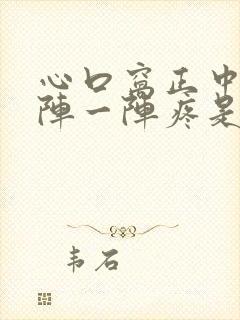 心口窝正中
陣一陣疼是
韦石